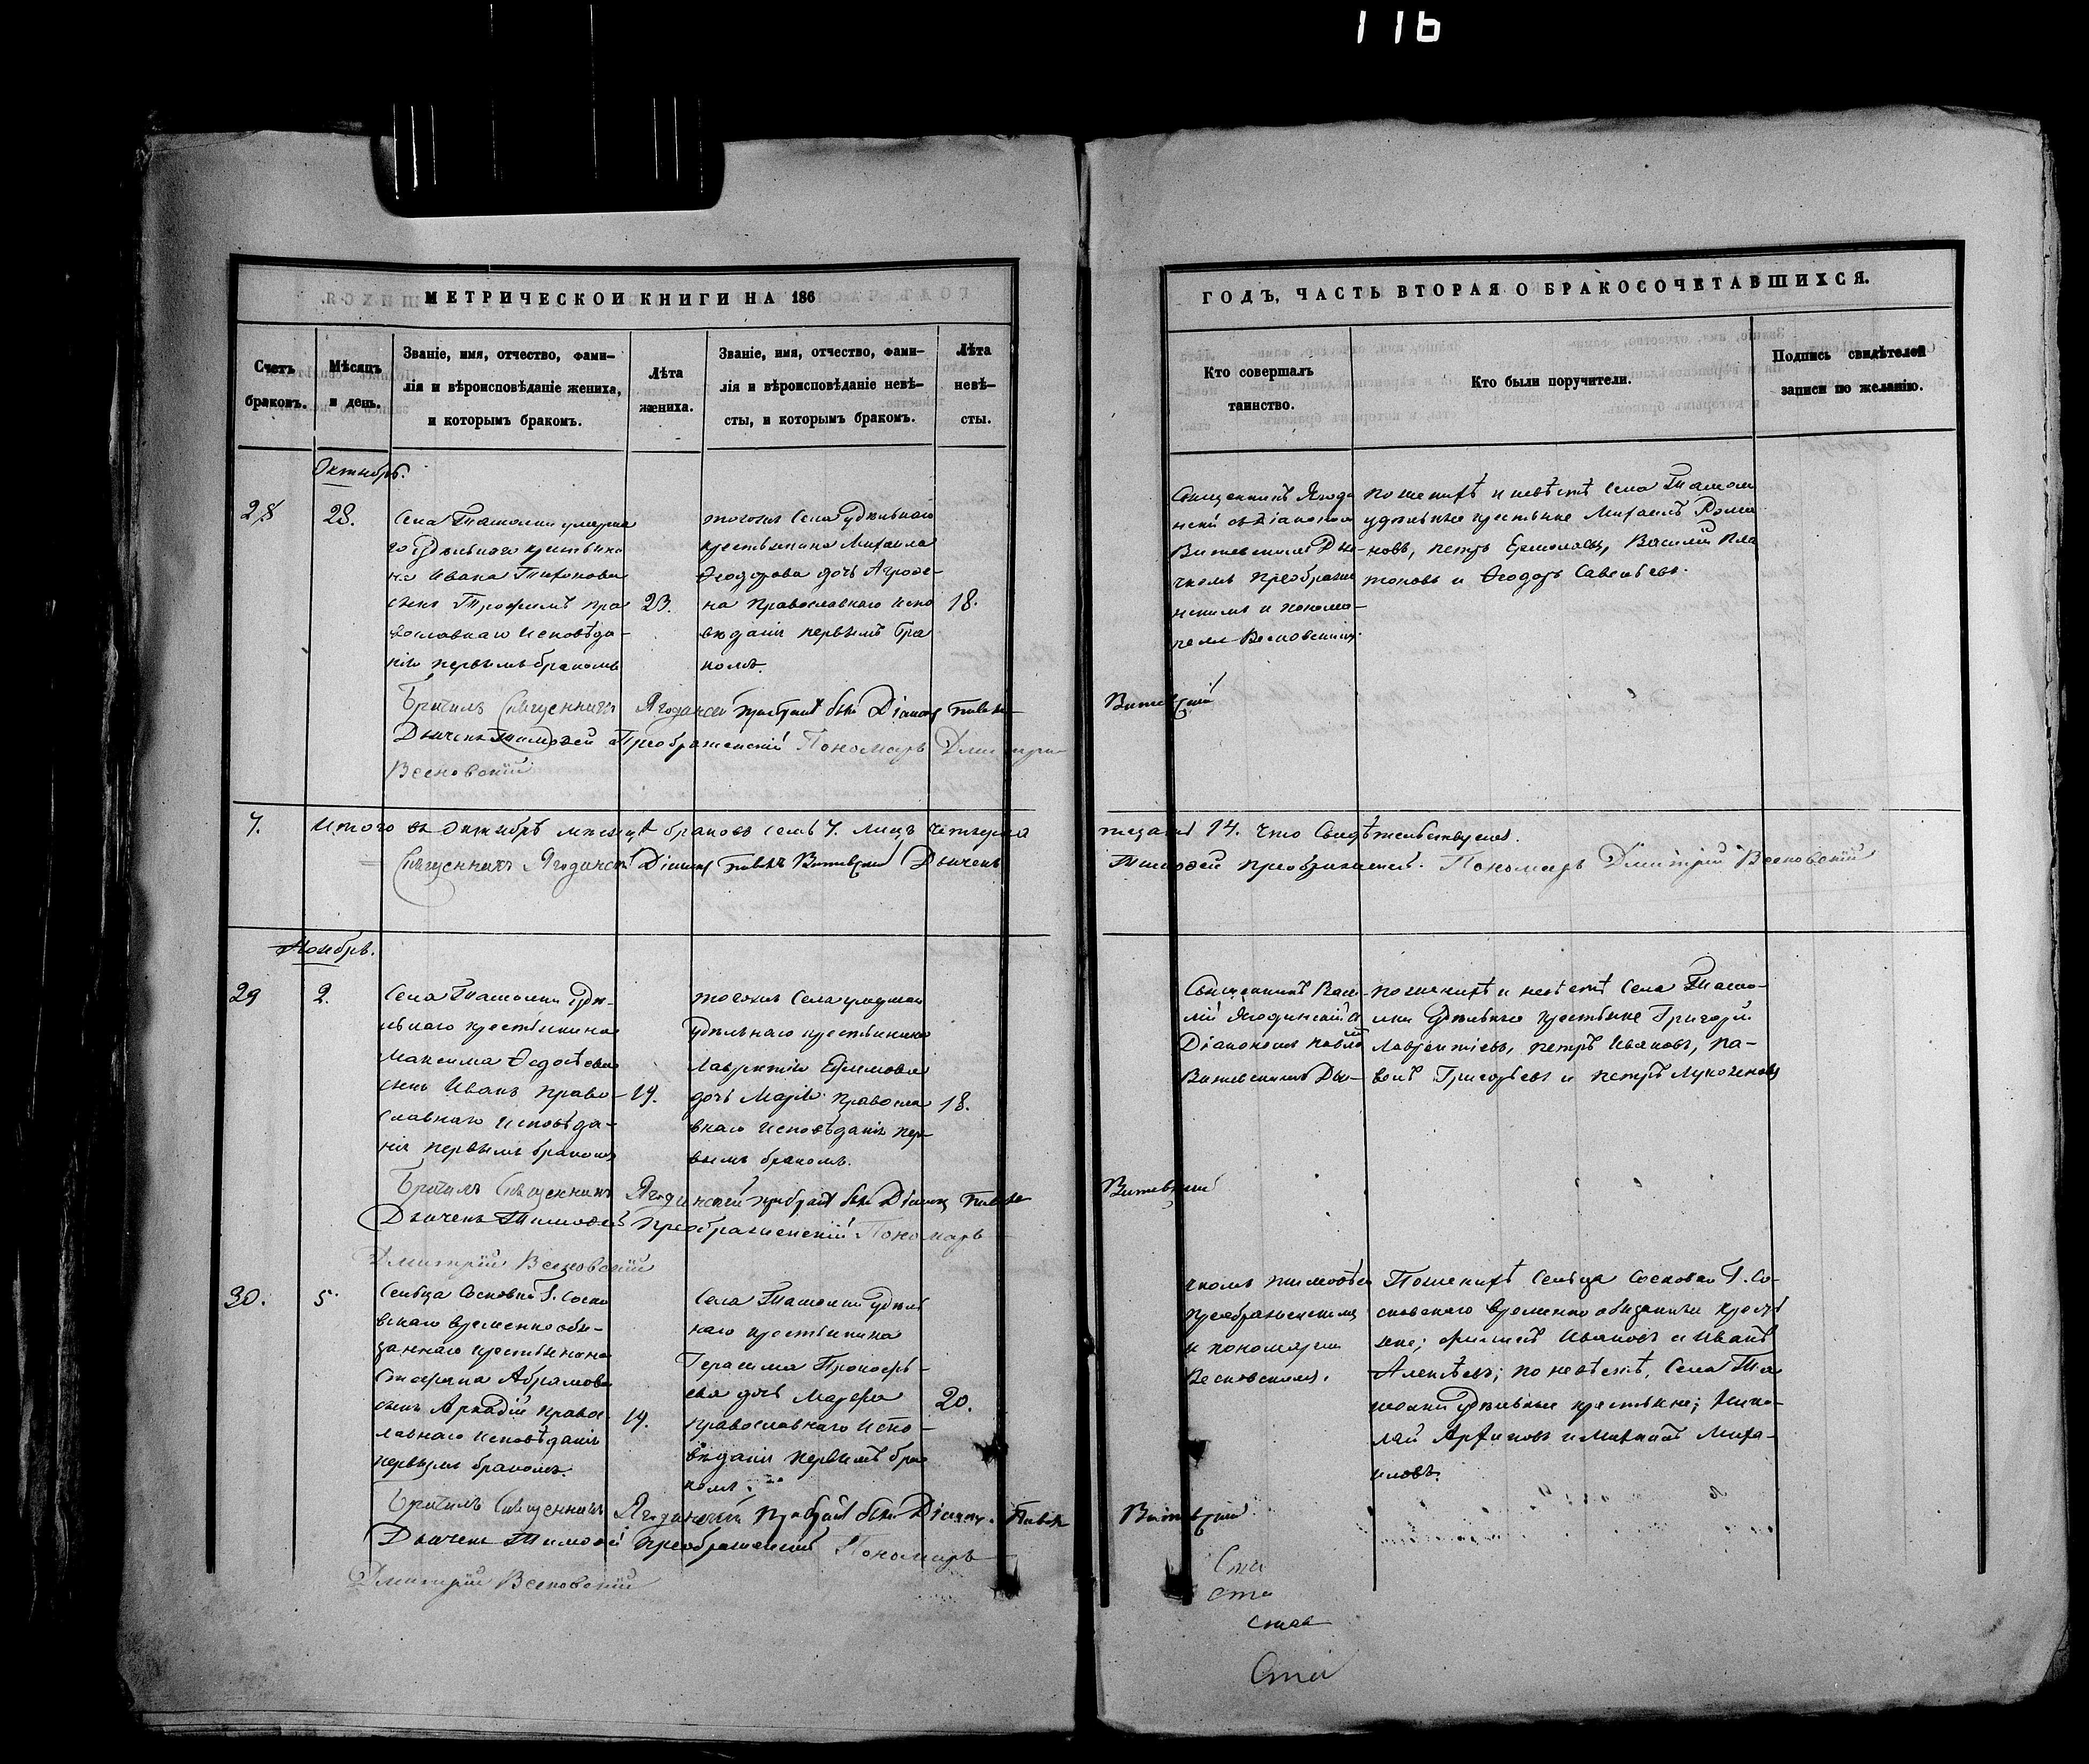 116
МЕТРИЧЕСКОЙ КНИГИ НА 186
Счетъ браковъ.
Мѣсяцъ и день.
Званіе, имя, отчество, фами-
лія и вѣроисповѣданіе жениха,
и которымъ бракомъ.
Лѣта жениха.
Званіе, имя, отчество, фами-
лія и вѣроисповѣданіе невѣ-
сты, и которымъ бракомъ.
Лѣта невѣ-
сты.
ГОДЪ, ЧАСТЬ ВТОРАЯ О БРАКОСОЧЕТАВШИХСЯ.
Кто совершалъ
таинство.
Кто были поручители.
Подпись свидѣтелей
записи по желанію.
Октябрь.
28
28.
Села Ташолки умерша
го удѣльнаго крестьяни
на Ивана Тихонова
сынъ Трофимъ пра
вославнаго исповѣда-
нія первымъ бракомъ
23.
тогожъ Села удѣльнаго
крестьянина Михаила
Ѳеодорова дочь Агрофе-
на православнаго испо
вѣданія первымъ бра
комъ.
18.
Священникъ Ягоди
нскій съ Діакономъ
Витевскимъ Дья-
чкомъ Преображе
нскимъ и понома-
ремъ Весновскимъ.
По женихѣ и невѣстѣ Села Ташолки
удѣльные крестьяне Михаилъ Рома
новъ, Петръ Ермолаевъ, Василій Пла
тоновъ и Ѳеодоръ Савельевъ.
Бракъ Священникъ Ягодинскій при бракѣ былъ Діаконъ Павелъ Витевскій
Дьячекъ Тимофей Преображенскій Пономарь Дмитрій
Весновскій
7.
Итого въ Октябрѣ мѣсяцѣ браковъ семь 7. лицъ четырна
тцать 14. Что свидѣтельствуемъ.
Священникъ Ягодинскій Діаконъ Павелъ Витевскій Дьячекъ
Тимофей Преображенскій. Пономарь Дмитрій Весновскій
Ноябрь.
29
2.
Села Ташолки Удѣ-
льнаго крестьянина
Максима Ѳедосѣева
сынъ Иванъ право-
славнаго исповѣда-
нія первымъ бракомъ
19.
тогожъ Села умершаго
удѣльнаго крестьянина
Лаврентія Ефимова
дочь Марія православ
внаго исповѣданія пер-
вымъ бракомъ.
18.
Священникъ Васи-
лій Ягодинскій съ
Діакономъ Павломъ
Витевскимъ Дья-
По женихѣ и невѣстѣ Села Ташо-
лки Удѣльные крестьяне Григорій
Лаврентіевъ, Петръ Ивановъ, Па-
велъ Григорьевъ и Петръ Лукояновъ
Священникъ Ягодинскій при бракѣ былъ Діаконъ Павелъ Витевскій
Дьячекъ Тимофей Преображенскій Пономарь
Дмитрій Весновскій
30.
5.
Сельца Сосновки Г. Сосно
вскаго временно обя-
заннаго крестьянина
Абрамова
сынъ Аркадій правос
лавнаго исповѣданія
первымъ бракомъ.
19.
Села Ташолки удѣль
наго крестьянина
Герасима Прокофь-
ева дочь Марфа
православнаго испо-
вѣданія первымъ бра
комъ.
20.
чкомъ Тимофѣемъ
Преображенскимъ
и пономаремъ
Весновскимъ.
По женихѣ Сельца Сосновки Г. Со-
сновскаго временно обязанные кресть
яне; Филиппъ Ивановъ и Иванъ
Алексѣевъ; по невѣстѣ, Села Та
шолки удѣльные крестьяне; Нико-
лай Архиповъ и Михаилъ Миха-
иловъ.
Священникъ Ягодинскій при бракѣ былъ Діаконъ Павелъ Витевскій
Дьячекъ Тимофей Преображенскій Пономарь
Дмитрій Весновскій
Ста
ста
став
Ста